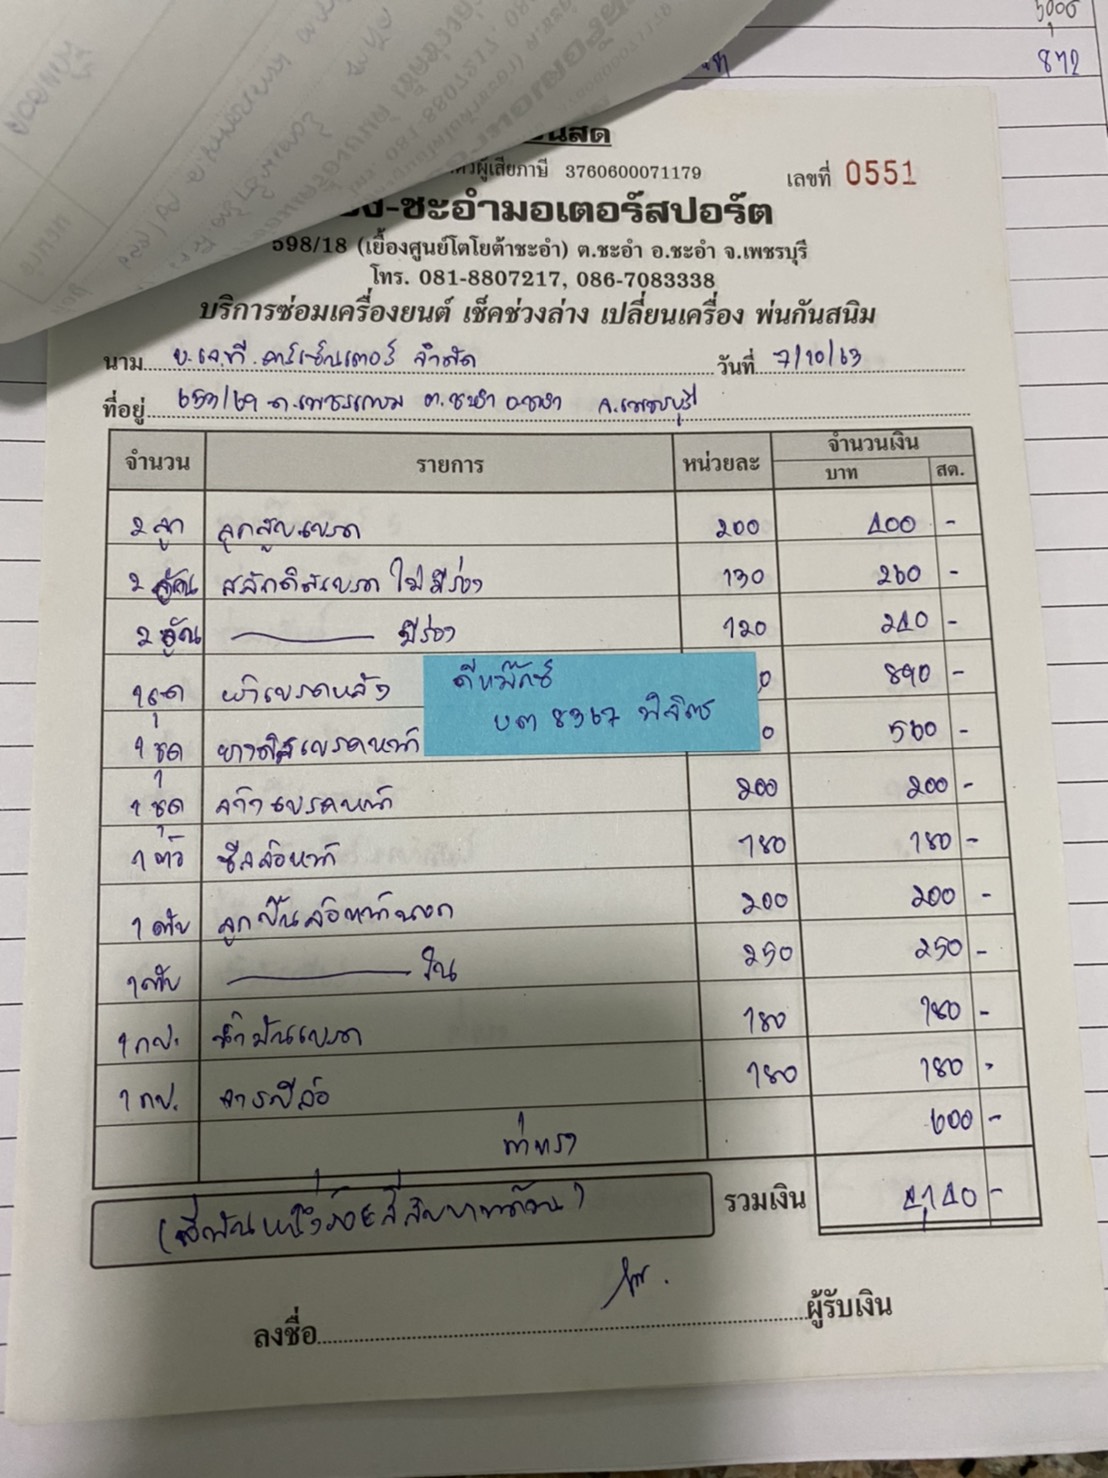 5,006
872
นสด
ผู้เสียภาษี 3760600071179
เลขที่ 0551
-ชะอำมอเตอร์สปอร์ต
598/18 (เยื้องศูนย์โตโยต้าชะอำ) ต.ชะอำ อ.ชะอำ จ.เพชรบุรี
โทร. 081-8807217, 086-7083338
บริการซ่อมเครื่องยนต์ เช็คช่วงล่าง เปลี่ยนเครื่อง พ่นกันสนิม
นาม บ.เจ.ที.คาร์เซ็นเตอร์ จำกัด วันที่ 7/10/63
ที่อยู่ 653/69 ถ.เพชรเกษม ต.ชะอำ อ.ชะอำ จ.เพชรบุรี
จำนวน รายการ หน่วยละ จำนวนเงิน
บาท สต.
2 ลูก ลูกสูบเบรค 200 400 -
2 อัน สลักดิสเบรค ไม่มีร่อง 130 260 -
2 อัน มีร่อง 120 240 -
1 ชุด ผ้าเบรคหลัง 0 890 -
ดีแม๊กซ์
บต 8367 พิจิตร
1 ชุด ยางดิสเบรคหน้า 0 560 -
1 ชุด เบรคหน้า 200 200 -
1 ตัว ซีลล้อหน้า 180 180 -
1 ตลับ ลูกปืนล้อหน้านอก 200 200 -
1 ตลับ ใน 250 250 -
1 กป. น้ำมันเบรค 180 180 -
1 กป. จารบีล้อ 180 180 -
ค่าแรง 600 -
(สี่พันหนึ่งร้อยสี่สิบบาทถ้วน) รวมเงิน 4,140 -
ลงชื่อ ผู้รับเงิน